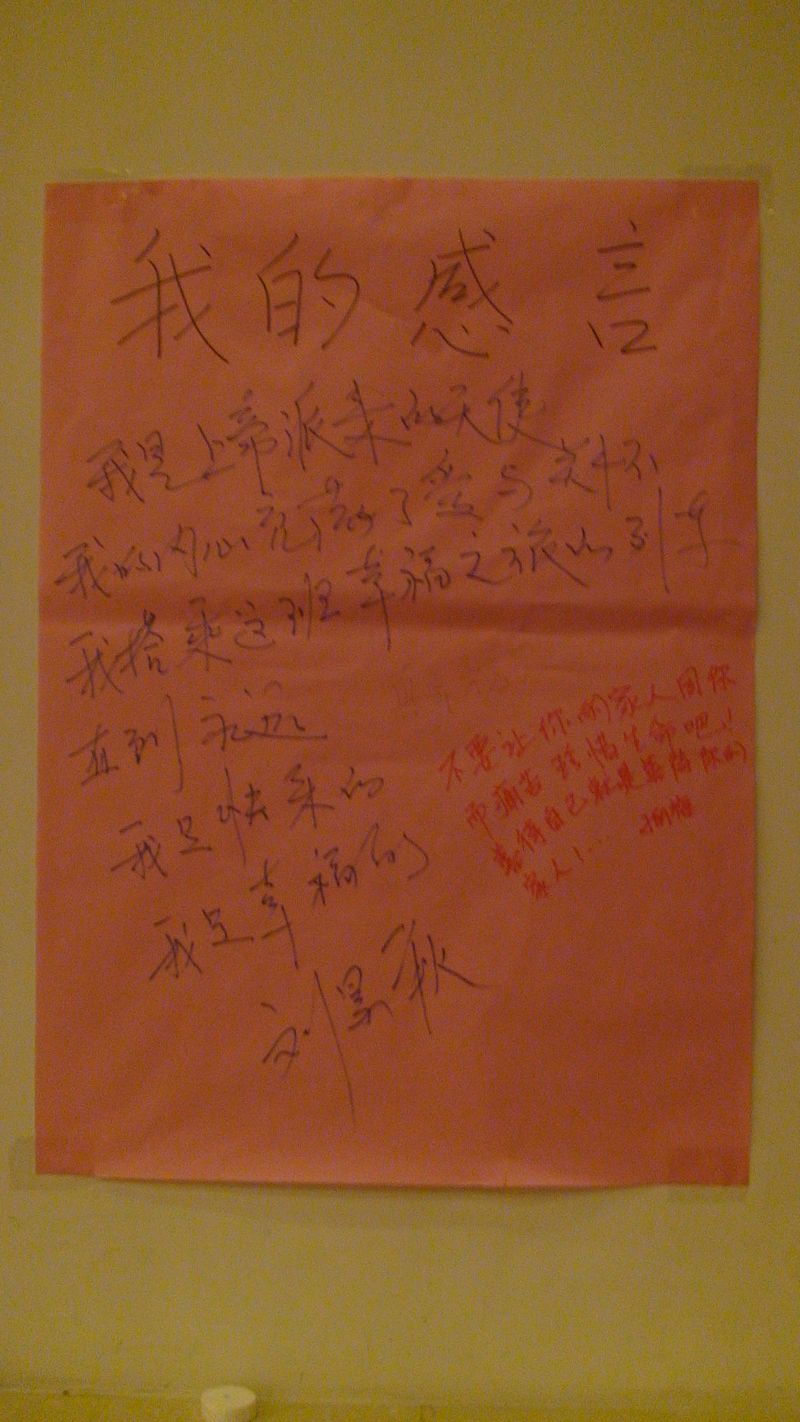 我的感言
我是上帝派来的天使
我的内心充满了爱与关怀
我搭乘这班幸福之旅的列车
直到永远
我是快乐的
我是幸福的
刘景秋
不要让你的家人因你
而痛苦 珍惜生命吧!!
珍惜自己就是珍惜你的
家人!...